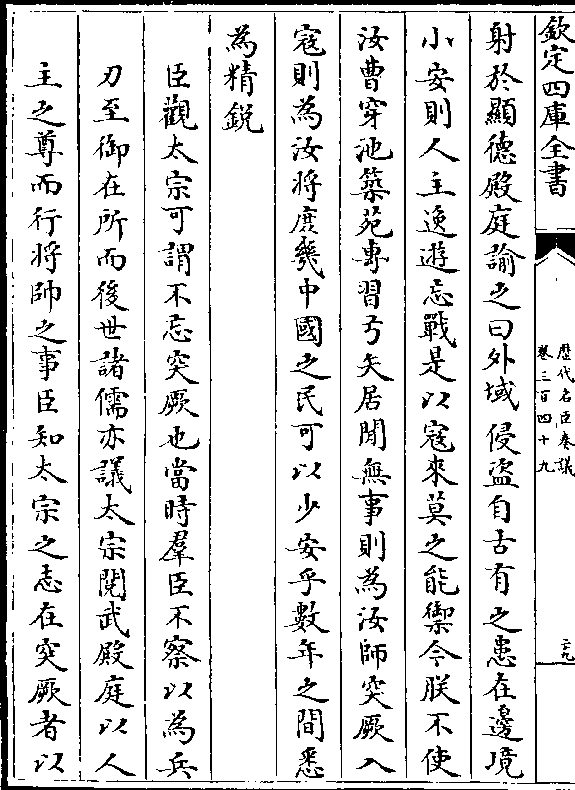 欽定四庫全書
歷代名臣奏議
卷三百四十九
二九
射於顯德殿庭諭之曰外域侵盜自古有之患在邊境
小安則人主逸遊忘戰是以寇來莫之能禦今朕不使
汝曹穿池築苑專習弓矢居閒無事則為汝師突厥入
寇則為汝將庶幾中國之民可以少安乎數年之間悉
為精銳
臣觀太宗可謂不忘突厥也當時羣臣不察以為兵
刃至御在所而後世諸儒亦議太宗閱武殿庭以人
主之尊而行將帥之事臣知太宗之志在突厥者以